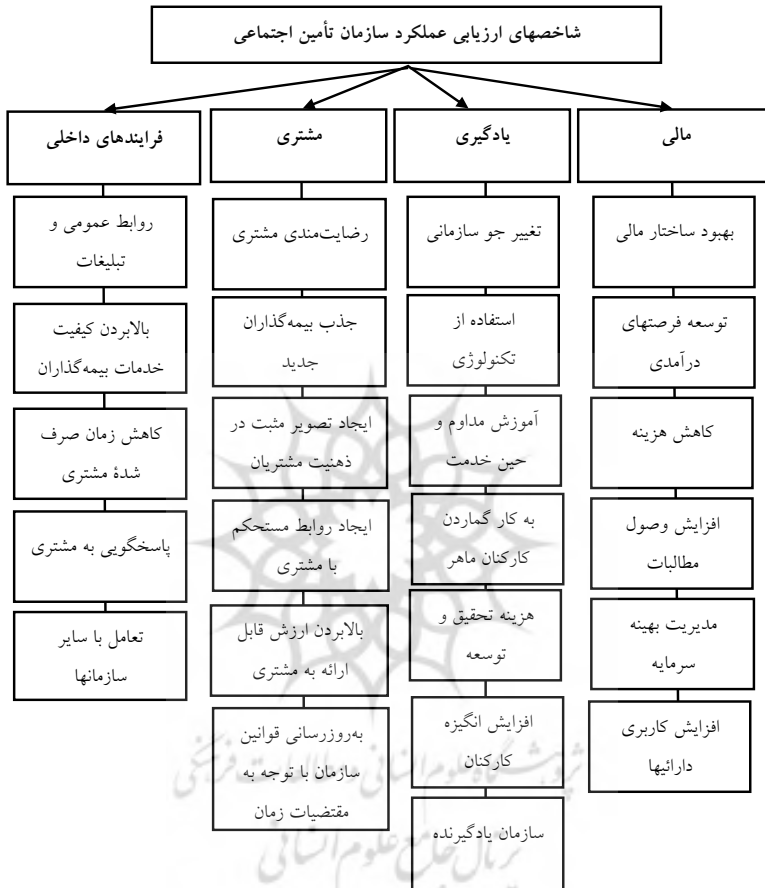 شاخصهای ارزیابی عملکرد سازمان تأمین اجتماعی
مالی
بهبود ساختار مالی
توسعه فرصتهای
درآمدی
کاهش هزینه
افزایش وصول
مطالبات
مدیریت بهینه
سرمایه
افزایش کاربری
دارائیها
یادگیری
تغییر جو سازمانی
استفاده از
تکنولوژی
آموزش مداوم و
حین خدمت
به کار گماردن
کارکنان ماهر
هزینه تحقیق و
توسعه
افزایش انگیزه
کارکنان
سازمان یادگیرنده
مشتری
رضایت‌مندی مشتری
جذب بیمه‌گذاران
جدید
ایجاد تصویر مثبت در
ذهنیت مشتریان
ایجاد روابط مستحکم
با مشتری
بالابردن ارزش قابل
ارائه به مشتری
به‌روزرسانی قوانین
سازمان با توجه به
مقتضیات زمان
فرایندهای داخلی
روابط عمومی و
تبلیغات
بالابردن کیفیت
خدمات بیمه‌گذاران
کاهش زمان صرف
شدۀ مشتری
پاسخگویی به مشتری
تعامل با سایر
سازمانها
پژوهشگاه علوم انسانی و مطالعات فرهنگی
پرتال جامع علوم انسانی